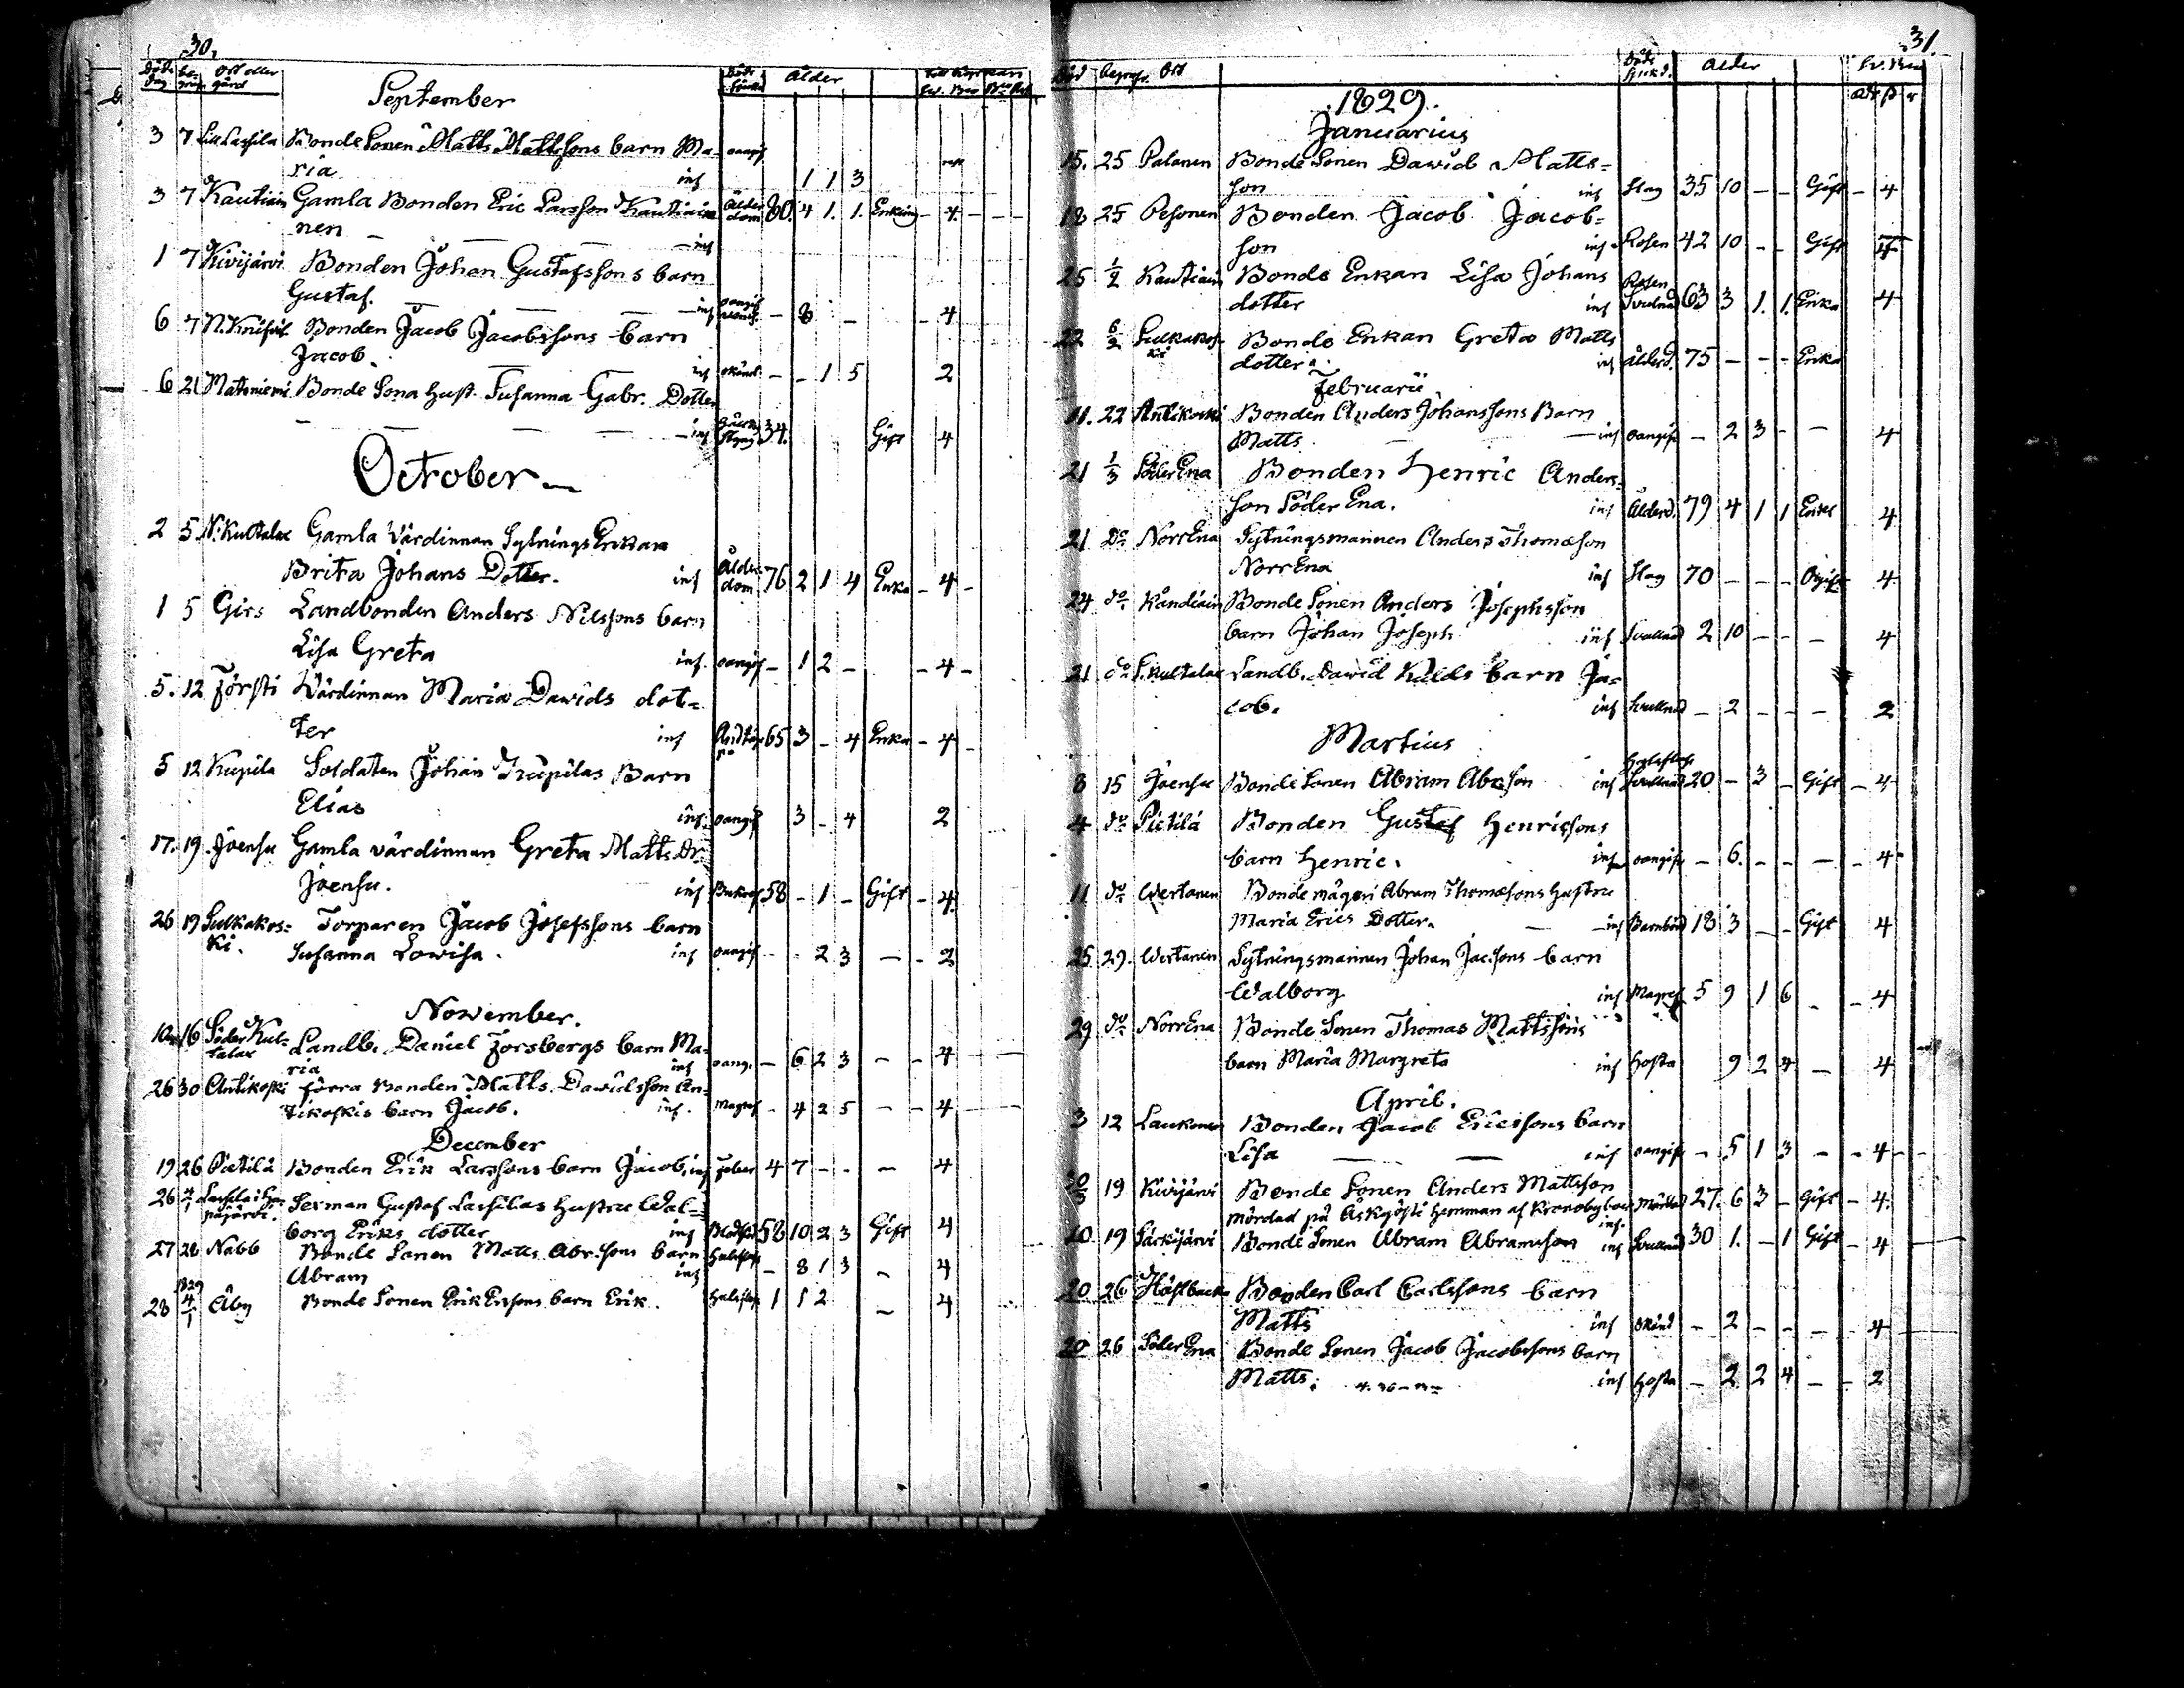 30.
Ort eller gård
ålder
September
3 7 Bonde Sonen Matts Mattssons barn Ma-
ria inf 1 1 3
3 7 Kautiain Gamla Bonden Eric Larsson Kautiaine Ålder dom 80. 4 1. 1. Enkling - 4 - - -
nen inf
1 7 Kivijärvi Bonden Johan Gustafssons barn
Gustaf. inf - 8 - - 4
6 7 Bonden Jacob Jacobssons barn
Jacob. inf okänd - - 1 5 2
6 21 Mataniemi Bonde Sona hust. Susanna Gabr. Dotter
inf 34. Gift 4
October
2 5 N. Kultalax Gamla Värdinnan Sytnings Enkan
Brita Johans Dotter. inf Ålder dom 76 2 1 4 Enka - 4 -
1 5 Girs Landbonden Anders Nilssons barn
Lisa Greta inf. oangif - 1 2 - - 4 -
5. 12 Försti Värdinnan Maria Dawids dot-
ter inf 65 3 - 4 Enka - 4 -
5 12 Krupila Soldaten Johan Krupilas Barn
Elias inf. oangif 3 - 4 2
17. 19 Joensu Gamla värdinnan Greta Matts Dr.
Joensu. inf 58 - 1 - Gift - 4.
26 19 Sulkakos= Torparen Jacob Josefssons barn
ki. Susanna Lowisa. inf oangif - - 2 3 - - 2
November.
16 Söder Kul= talax Landb. Daniel Forsbergs barn Ma-
ria inf oang. - 6 2 3 - - 4
26 30 Antikoski förra Bonden Matts Dawidsson An-
tikoskis barn Jacob. inf. Magref - 4 2 5 - - 4
December
19 26 Pietilä Bonden Erik Larssons barn Jacob, inf Feber 4 7 - - - 4
26 4/1 Gustaf Lassilas hustru Wal-
borg Eriks dotter inf 58 10 2 3 Gift 4
27 26 Nabb Bonde Sonen Matts Abr.sons barn
Abram inf - 8 1 3 - 4
1829
28 4/1 Åby Bonde Sonen Erik Ersons barn Erik. 1 1 2 - 4
31.
Död Begrafn. Ort
Ålder
1829.
Januarius
15. 25 Palanen Bonde Sonen Dawid Matts-
son inf Slag 35 10 - - Gift - 4
18 25 Pesonen Bonden Jacob Jacob-
son inf Rosen 42 10 - - Gift 4
25 1/2 Kautiain Bonde Enkan Lisa Johans
dotter inf Rosen Svullnad 63 3 1. 1. Enka 4
22 6/2 Sulkakos- ki Bonde Enkan Greta Matts
dotter. inf ålderd. 75 - - - Enka
Februarii
11. 22 Antikoski Bonden Anders Johanssons Barn
Matts inf oangif - 2 3 - - 4
21 1/3 Söder Ena Bonden Henric Anders-
son Söder Ena. inf Ålderd. 79 4 1 1 Enkl 4
21 Do Norr Ena Sytningsmannen Anders Thomæson
Norr Ena inf Slag 70 - - - Ogift 4
24 do Kandiain Bonde Sonen Anders Josephsson
barn Johan Joseph inf Svullnad 2 10 - - - 4
21 do S. Kultalax Landb. Dawid barn Ja-
cob. inf Svullnad - 2 - - - 2
Martius
8 15 Joensu Bonde Sonen Abram Abr.son inf Svullnad 20 - 3 - Gift - 4
4 do Pietilä Bonden Gustaf Henrissons
barn Henric. inf oangif - 6. - - - - 4
11 do Wertanen Bonde mågen Abram Thomæsons hustru
Maria Erics Dotter. inf Barnbörd 18 3 - - Gift 4
25 29. Wertanen Sytningsmannen Johan Jac.sons barn
Walborg inf Magref 5 9 1 6 - - 4
29 do Norr Ena Bonde Sonen Thomas Mattssons
barn Maria Margreta inf hosta 9 2 4 - 4
April.
3 12 Laukonen Bonden Jacob Ericssons barn
Lisa inf oangif - 5 1 3 - - 4 -
30/3 19 Kivijärvi Bonde Sonen Anders Mattsson
mördad på Åskjösti hemman af Kronoby Mördad 27. 6 3 - Gift - 4.
inf.
10 19 Särkijärvi Bonde Sonen Abram Abramsson inf Svullnad 30 1. - 1 Gift - 4
20 26 Höstbacka Bonden Carl Carlssons barn
Matts inf okänd - 2 - - - - 4
20 26 Söder Ena Bonde Sonen Jacob Jacobssons barn
Matts. inf hosta - 2 2 4 - - 2